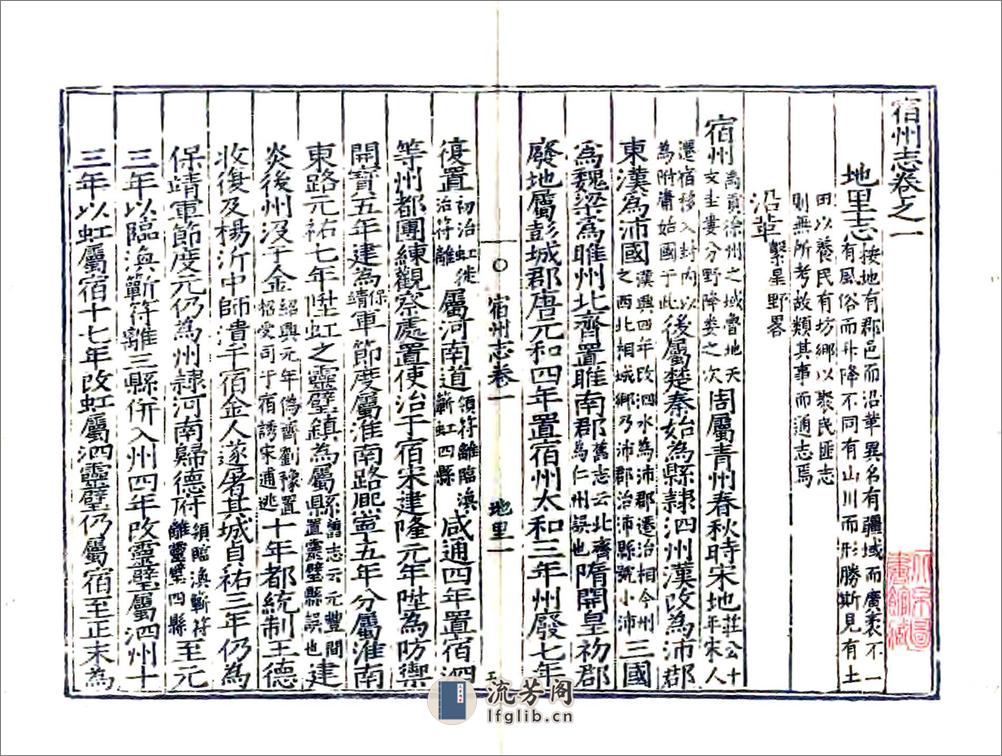 宿州志卷之一
地里志按地有郡邑而沿革異名有疆域而廣袤不一
有風俗而升降不同有山川而形勝斯見有土
田以養民有坊鄉以聚民匪志
則無所考故類其事而通志焉
沿革繫星野畧
宿州禹貢徐州之域魯地天
文奎婁分野降婁之次周屬青州春秋時宋地莊公十
年宋人
遷宿移入封内以
為附庸始國于此後屬楚秦始為縣隷四州漢改為沛郡
漢興四年改泗水為沛郡遷治相今州
之西北相城鄉乃沛郡治沛縣號小沛
東漢為沛國三國
為魏梁為睢州北齊置睢南郡舊志云北齊
為仁州誤也隋開皇初郡
廢地屬彭城郡唐元和四年置宿州太和三年州廢七年
宿州志卷一
地里一
復置初治虹徙
治符離屬河南道領符離臨渙
蘄虹四縣咸通四年置宿泗
等州都團練觀察處置使治于宿宋建隆元年陞為防禦
開寶五年建為保
靖軍節度屬淮南路熙寧五年分屬淮南
東路元祐七年陞虹之靈璧鎮為屬縣舊志云元豐間
置靈璧縣誤也建
炎後州没于金紹興元年僞齊劉豫置
招受司于宿誘宋逋逃十年都統制王德
收復及楊沂中師潰于宿金人遂屠其城貞祐三年仍為
保靖軍節度元仍為州隷河南歸德府領臨渙蘄符
離靈璧四縣至元
三年以臨渙蘄符離三縣併入州四年改靈璧屬泗州十
三年以虹屬宿十七年改虹屬泗靈璧仍屬宿至正末為
流芳阁
lfglib.cn